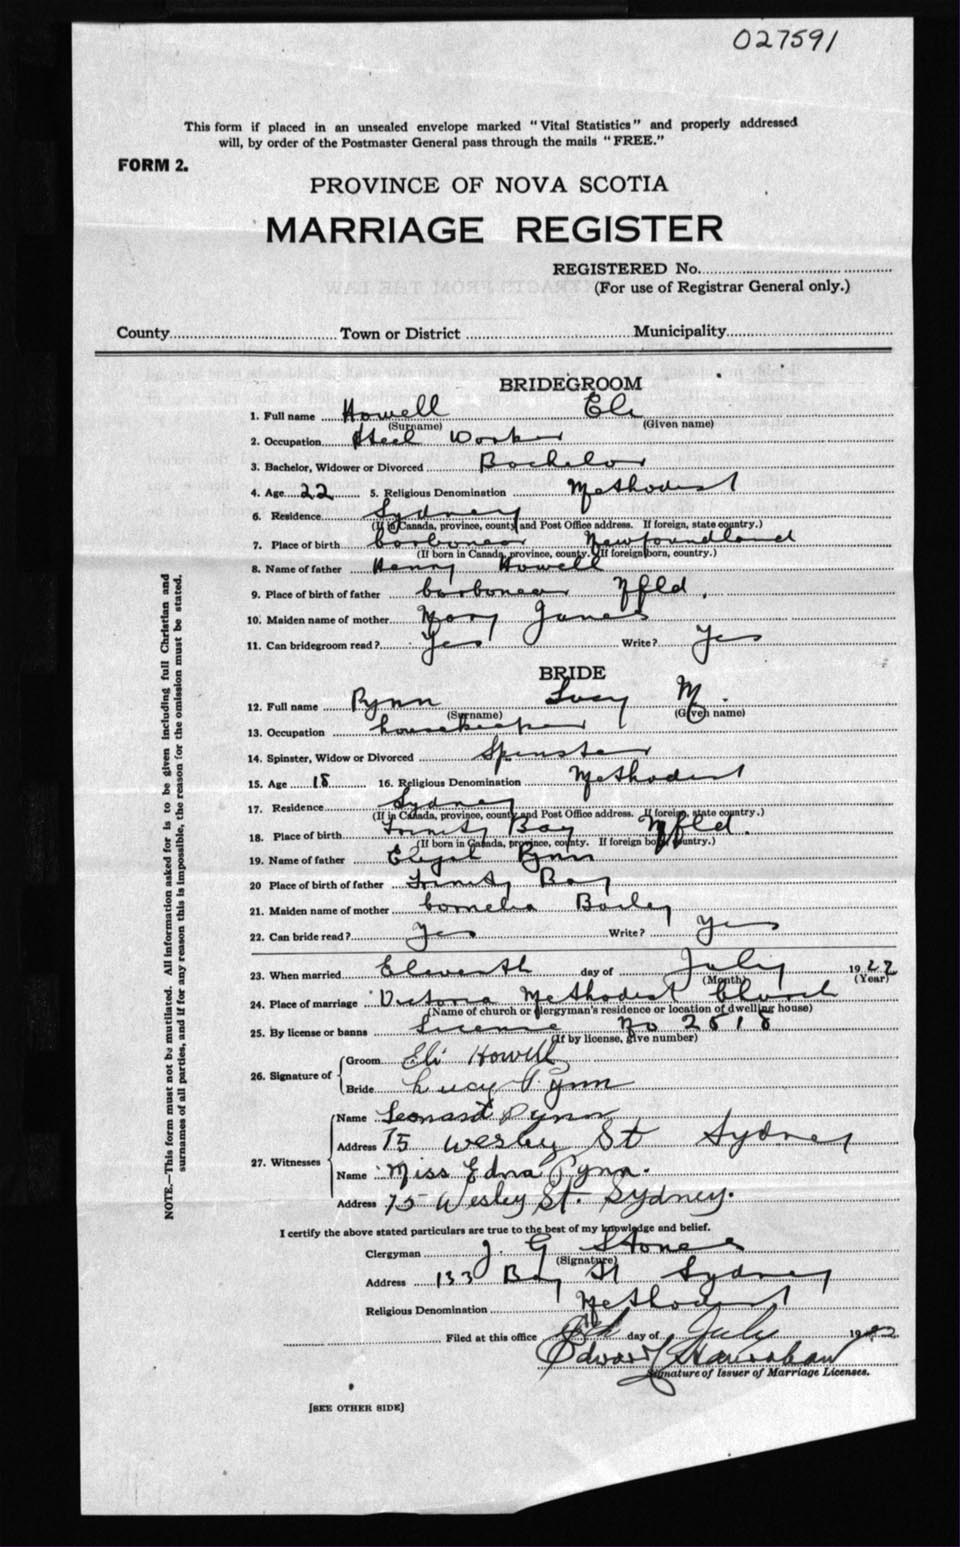 027591
This form if placed in an unsealed envelope marked "Vital Statistics" and properly addressed
will, by order of the Postmaster General pass through the mails "FREE."
FORM 2.
PROVINCE OF NOVA SCOTIA
MARRIAGE REGISTER
REGISTERED No.
(For use of Registrar General only.)
County Town or District Municipality
BRIDEGROOM
1. Full name Howell Eli
(Surname) (Given name)
2. Occupation Steel Worker
3. Bachelor, Widower or Divorced Bachelor
4. Age 22 5. Religious Denomination Methodist
6. Residence Sydney
(If in Canada, province, county and Post Office address. If foreign, state country.)
7. Place of birth Carbonear Newfoundland
(If born in Canada, province, county. If foreign born, country.)
8. Name of father Henry Howell
9. Place of birth of father Carbonear Nfld.
10. Maiden name of mother Mary Janes
11. Can bridegroom read? Yes Write? Yes
BRIDE
12. Full name Pynn Lucy M.
(Surname) (Given name)
13. Occupation housekeeper
14. Spinster, Widow or Divorced Spinster
15. Age 18 16. Religious Denomination Methodist
17. Residence Sydney
(If in Canada, province, county and Post Office address. If foreign, state country.)
18. Place of birth Trinity Bay Nfld.
(If born in Canada, province, county. If foreign born, country.)
19. Name of father Pynn
20 Place of birth of father Trinity Bay
21. Maiden name of mother Cornelia
22. Can bride read? Yes Write? Yes
23. When married Eleventh day of July 1922
(Month) (Year)
24. Place of marriage Victoria Methodist Church
(Name of church or clergyman's residence or location of dwelling house)
25. By license or banns License No 2818
(If by license, give number)
26. Signature of Groom Eli Howell
Bride Lucy Pynn
27. Witnesses Name Leonard Pynn
Address 75 Wesley St Sydney
Name Miss Edna Pynn.
Address 75 Wesley St. Sydney.
I certify the above stated particulars are true to the best of my knowledge and belief.
Clergyman J. G
(Signature)
Address 133 Bay St Sydney
Religious Denomination Methodist
Filed at this office day of July 1922
Edward
Signature of Issuer of Marriage Licenses.
[SEE OTHER SIDE]
NOTE.—This form must not be mutilated. All information asked for is to be given including full Christian and
surnames of all parties, and if for any reason this is impossible, the reason for the omission must be stated.